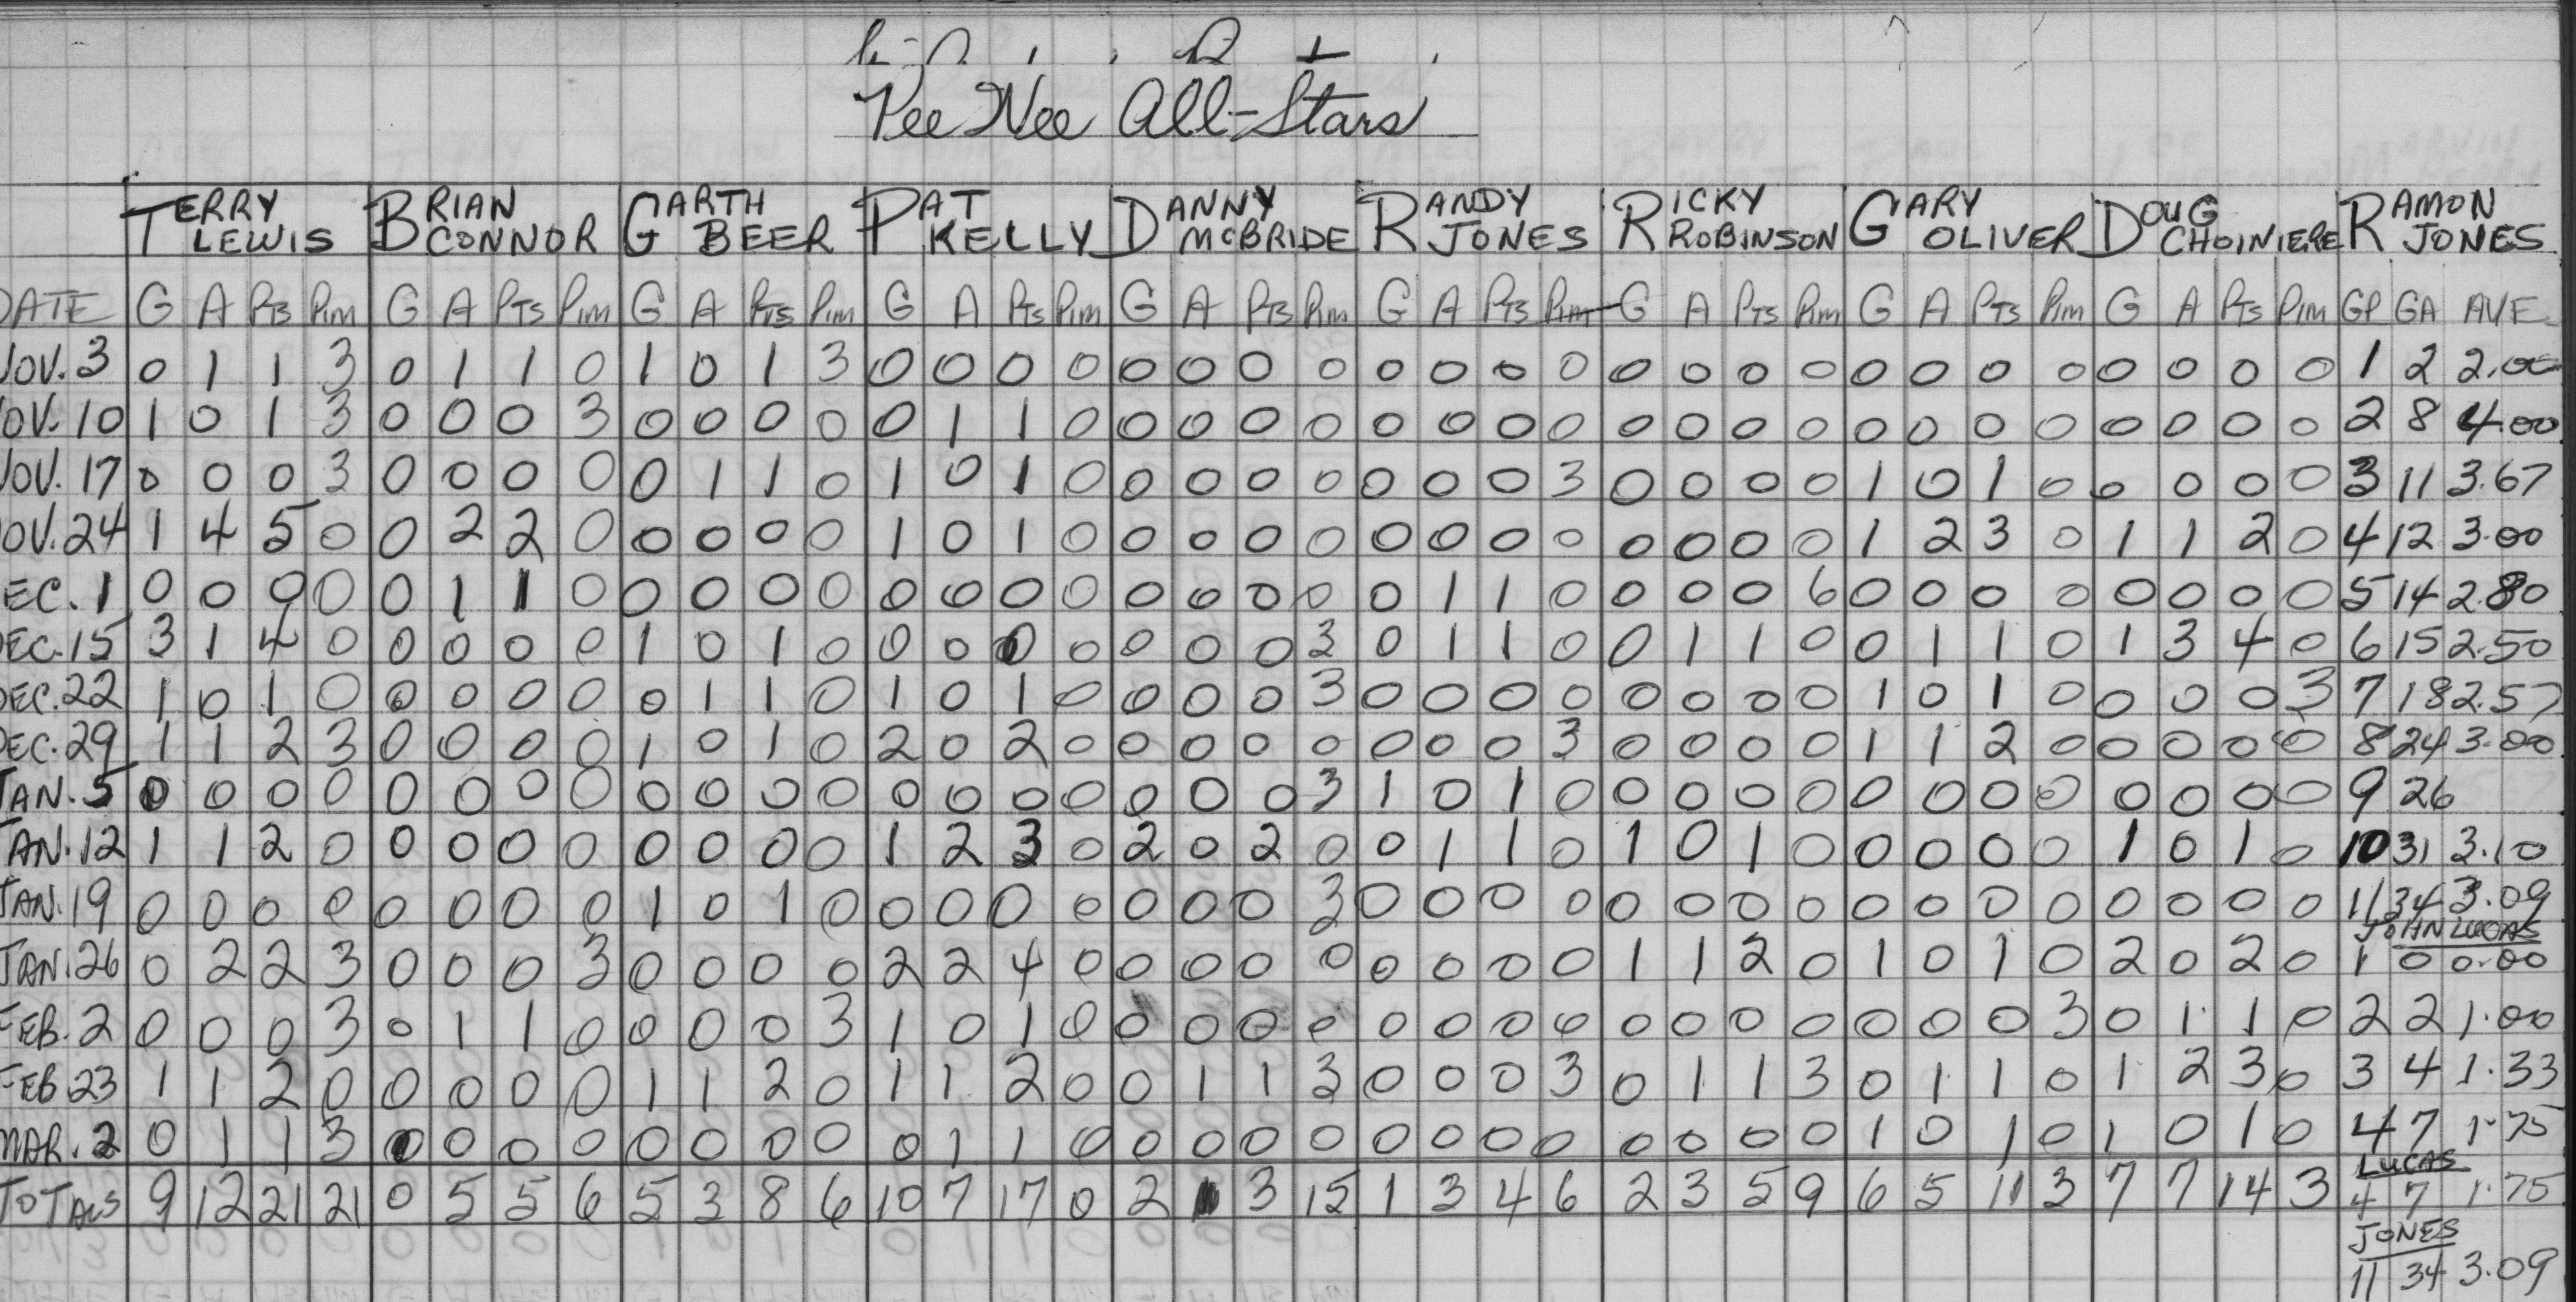 Pee Wee All-Stars
TERRY LEWIS BRIAN CONNOR GARTH BEER PAT KELLY DANNY McBRIDE RANDY JONES RICKY ROBINSON GARY OLIVER DOUG CHOINIERE RAMON JONES
DATE G A PTS PIM G A PTS PIM G A PTS PIM G A PTS PIM G A PTS PIM G A PTS PIM G A PTS PIM G A PTS PIM G A PTS PIM GP GA AVE
NOV. 3 0 1 1 3 0 1 1 0 1 0 1 3 0 0 0 0 0 0 0 0 0 0 0 0 0 0 0 0 0 0 0 0 0 0 0 0 1 2 2.00
NOV. 10 1 0 1 3 0 0 0 3 0 0 0 0 0 1 1 0 0 0 0 0 0 0 0 0 0 0 0 0 0 0 0 0 0 0 0 0 2 8 4.00
NOV. 17 0 0 0 3 0 0 0 0 0 1 1 0 1 0 1 0 0 0 0 0 0 0 0 3 0 0 0 0 1 0 1 0 0 0 0 0 3 11 3.67
NOV. 24 1 4 5 0 0 2 2 0 0 0 0 0 1 0 1 0 0 0 0 0 0 0 0 0 0 0 0 0 1 2 3 0 1 1 2 0 4 12 3.00
DEC. 1 0 0 0 0 0 1 1 0 0 0 0 0 0 0 0 0 0 0 0 0 0 1 1 0 0 0 0 6 0 0 0 0 0 0 0 0 5 14 2.80
DEC. 15 3 1 4 0 0 0 0 0 1 0 1 0 0 0 0 0 0 0 0 3 0 1 1 0 0 1 1 0 0 1 1 0 1 3 4 0 6 15 2.50
DEC. 22 1 0 1 0 0 0 0 0 0 1 1 0 1 0 1 0 0 0 0 3 0 0 0 0 0 0 0 0 1 0 1 0 0 0 0 3 7 18 2.57
DEC. 29 1 1 2 3 0 0 0 0 1 0 1 0 2 0 2 0 0 0 0 0 0 0 0 3 0 0 0 0 1 1 2 0 0 0 0 0 8 24 3.00
JAN. 5 0 0 0 0 0 0 0 0 0 0 0 0 0 0 0 0 0 0 0 3 1 0 1 0 0 0 0 0 0 0 0 0 0 0 0 0 9 26
JAN. 12 1 1 2 0 0 0 0 0 0 0 0 0 1 2 3 0 2 0 2 0 0 1 1 0 1 0 1 0 0 0 0 0 1 0 1 0 10 31 3.10
JAN. 19 0 0 0 0 0 0 0 0 1 0 1 0 0 0 0 0 0 0 0 3 0 0 0 0 0 0 0 0 0 0 0 0 0 0 0 0 11 34 3.09
JOHN LUCAS
JAN. 26 0 2 2 3 0 0 0 3 0 0 0 0 2 2 4 0 0 0 0 0 0 0 0 0 1 1 2 0 1 0 1 0 2 0 2 0 1 0 0.00
FEB. 2 0 0 0 3 0 1 1 0 0 0 0 3 1 0 1 0 0 0 0 0 0 0 0 0 0 0 0 0 0 0 0 3 0 1 1 0 2 2 1.00
FEB 23 1 1 2 0 0 0 0 0 1 1 2 0 1 1 2 0 0 1 1 3 0 0 0 3 0 1 1 3 0 1 1 0 1 2 3 0 3 4 1.33
MAR. 2 0 1 1 3 0 0 0 0 0 0 0 0 0 1 1 0 0 0 0 0 0 0 0 0 0 0 0 0 1 0 1 0 1 0 1 0 4 7 1.75
LUCAS
TOTALS 9 12 21 21 0 5 5 6 5 3 8 6 10 7 17 0 2 1 3 15 1 3 4 6 2 3 5 9 6 5 11 3 7 7 14 3 4 7 1.75
JONES
11 34 3.09